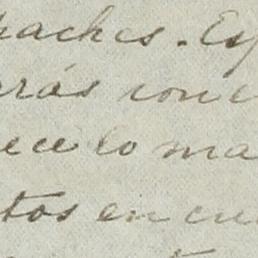 paches. Esp
arás con e
ece lo ma
tos en cu